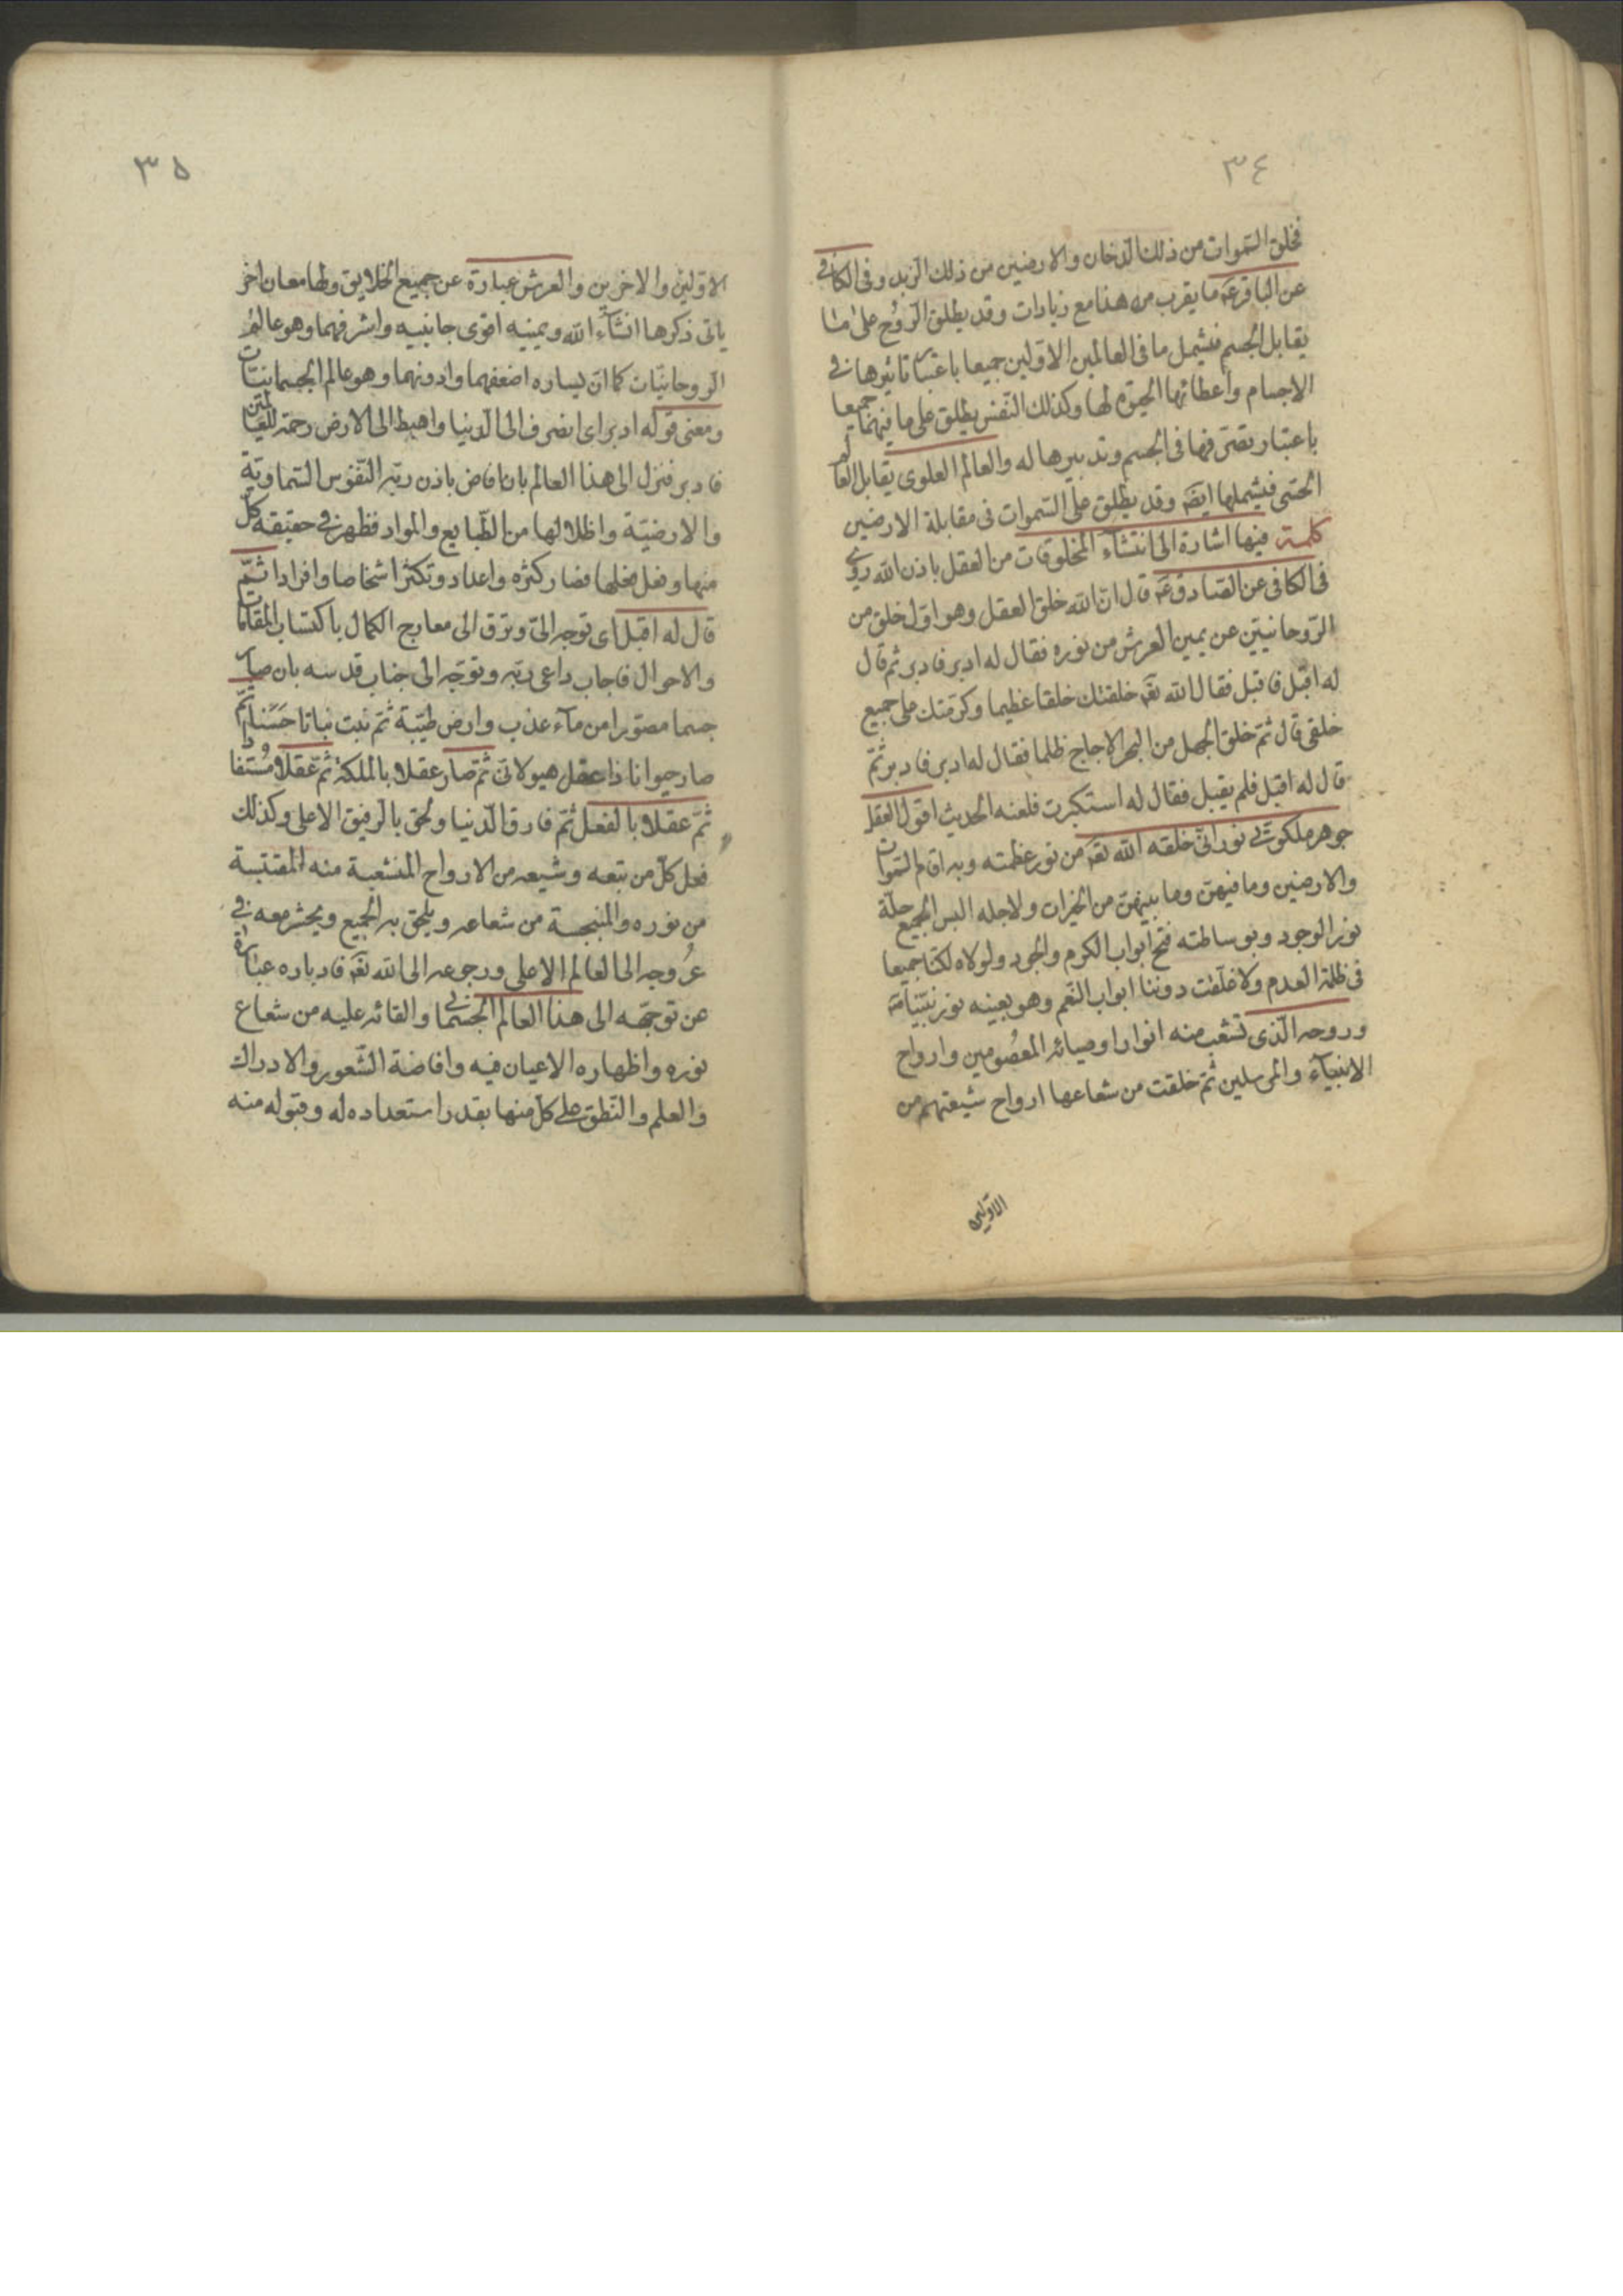 ٣٤
فخلق السّموات من ذلك الدّخان والارضين من ذلك الزبد وفى الكافى
عن الباقرعه ما يقرب من هذا مع زيادات وقد يطلق الرّوح على ما
يقابل الجسم فيشمل ما فى العالمين الاوّلين جميعا باعتبار تاثيرها فى
الاجسام واعطائها الحيوة لها وكذلك النّفس يطلق على ما فيهما جميعا
باعتبار تصرّفها فى الجسم وتدبيرها له والعالم العلوى يقابل العالم
الحسّى فيشملها ايضه وقد يطلق على السّموات فى مقابلة الارضين
كلمة فيها اشارة الى انتشآء المخلوقات من العقل باذن الله روى
فى الكافى عن الصّادق عه قال انّ الله خلق العقل وهو اوّل خلق من
الرّوحانيّين عن يمين العرش من نوره فقال له ادبر فادبر ثم قال
له اقبل فاقبل فقال الله تعه خلقتك خلقا عظيما وكرّمتك على جميع
خلقى قال ثمّ خلق الجهل من البحر الاجاج ظلما فقال له ادبر فادبر ثمّ
قال له اقبل فلم يقبل فقال له استكبرت فلعنه الحديث اقول العقل
جوهر ملكوتى نورانىّ خلقه الله تعه من نور عظمته وبه اقام السّموات
والارضين وما فيهنّ وما بينهنّ من الخيرات ولاجله البس الجميع حلّة
نور الوجود وبوساطته فتح ابواب الكرم والجود ولولاه لكنّا جميعا
فى ظلمة العدم ولاغلقت دوننا ابواب النّعم وهو بعينه نور نبيّنا صه
وروحه الّذى تشعّب منه انوار اوصيائه المعصُومين وارواح
الانبيآء والمرسلين ثمّ خلقت من شعاعها ارواح شيعتهم من
الاوّلين
٣٥
الاوّلين والاخرين والعرش عبارة عن جميع الخلايق ولها معان اخر
ياتى ذكرها انشآء الله ويمينه اقوى جانبيه واشرفهما وهو عالم
الرّوحانيّات كما انّ يساره اضعفهما وادونهما وهو عالم الجسمانيّات
ومعنى قوله ادبر اى انصرف الى الدّنيا واهبط الى الارض رحمة للعالمين
فادبر فنزل الى هذا العالم بان افاض باذن ربّه النّفوس السّماويّة
والارضيّة واظلالها من الطّبايع والمواد فظهر فى حقيقة كلّ
منها وفعل فعلها فصار كثره واعداد وتكثّر اشخاصا وافرادا ثمّ
قال له اقبل اى توجه الىّ وترقّ الى معارج الكمال باكتساب المقامات
والاحوال فاجاب داعى ربّه وتوجّه الى جناب قدسه بان صار
جسما مصوّرا من مآء عذب وارض طيّبة ثمّ نبت نباتا حَسَنا ثمّ
صار حيوانا ذا عقل هيولانىّ ثمّ صار عقلا بالملكة ثمّ عقلا مُستفادا
ثمّ عقلا بالفعل ثمّ فارق الدّنيا ولحق بالرفيق الاعلى وكذلك
فعل كلّ من تبعه وشيعه من الارواح المنشعبة منه المقتبسة
من نوره والمنبجسة من شعاعه ويلحق به الجميع ويحشر معه فى
عُروجه الى العالم الاعلى ورجوعه الى الله تعه فادباره عبارة
عن توجّهه الى هذا العالم الجسمانى والقائه عليه من شعاع
نوره واظهاره الاعيان فيه وافاضة الشّعور والادراك
والعلم والنّطق على كلّ منها بقدر استعداده له وقبوله منه